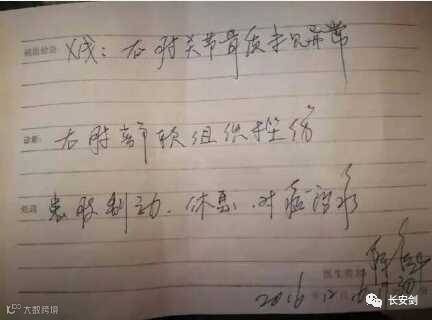 辅助检查: X线:右肘关节骨质未见异常
诊断: 右肘部软组织挫伤
处理 患肢制动.休息.对症治疗
医生签名:
2016年12月16日
大数跨境
长安剑